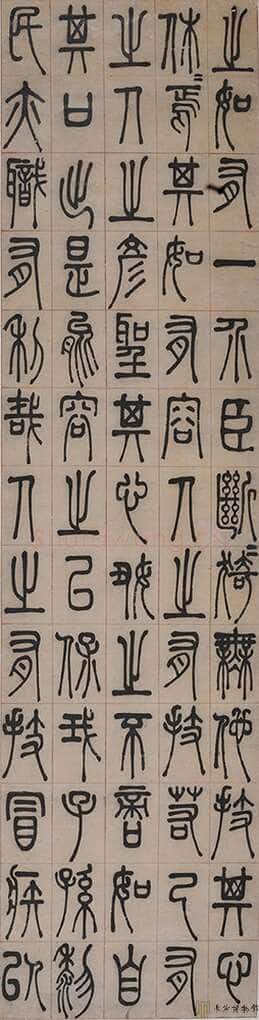 之如有一介臣斷〻猗無他技其心
休〻焉其如有容人之有技若己有
之人之彥聖其心好之不啻如自
其口出是能容之以保我子孫黎
民亦職有利哉人之有技冒疾以